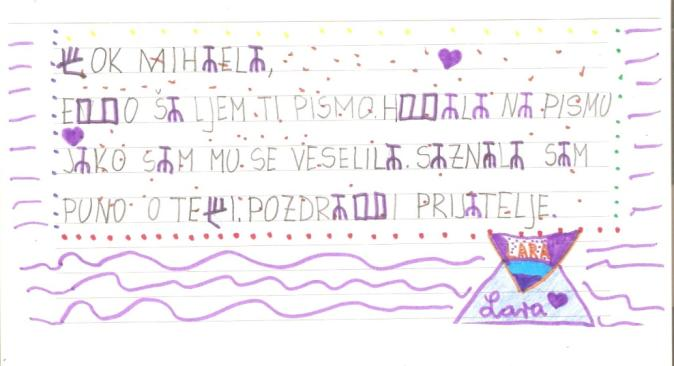 ⰁOK MIHⰀELⰀ,
EⰂO ŠⰀLJEM TI PISMO. HⰂⰀLⰀ NⰀ PISMU
JⰀKO SⰀM MU SE VESELILⰀ. SⰀZNⰀLⰀ SⰀM
PUNO O TEⰁI. POZDRⰀⰂI PRIJⰀTELJE.
LARA
Lara